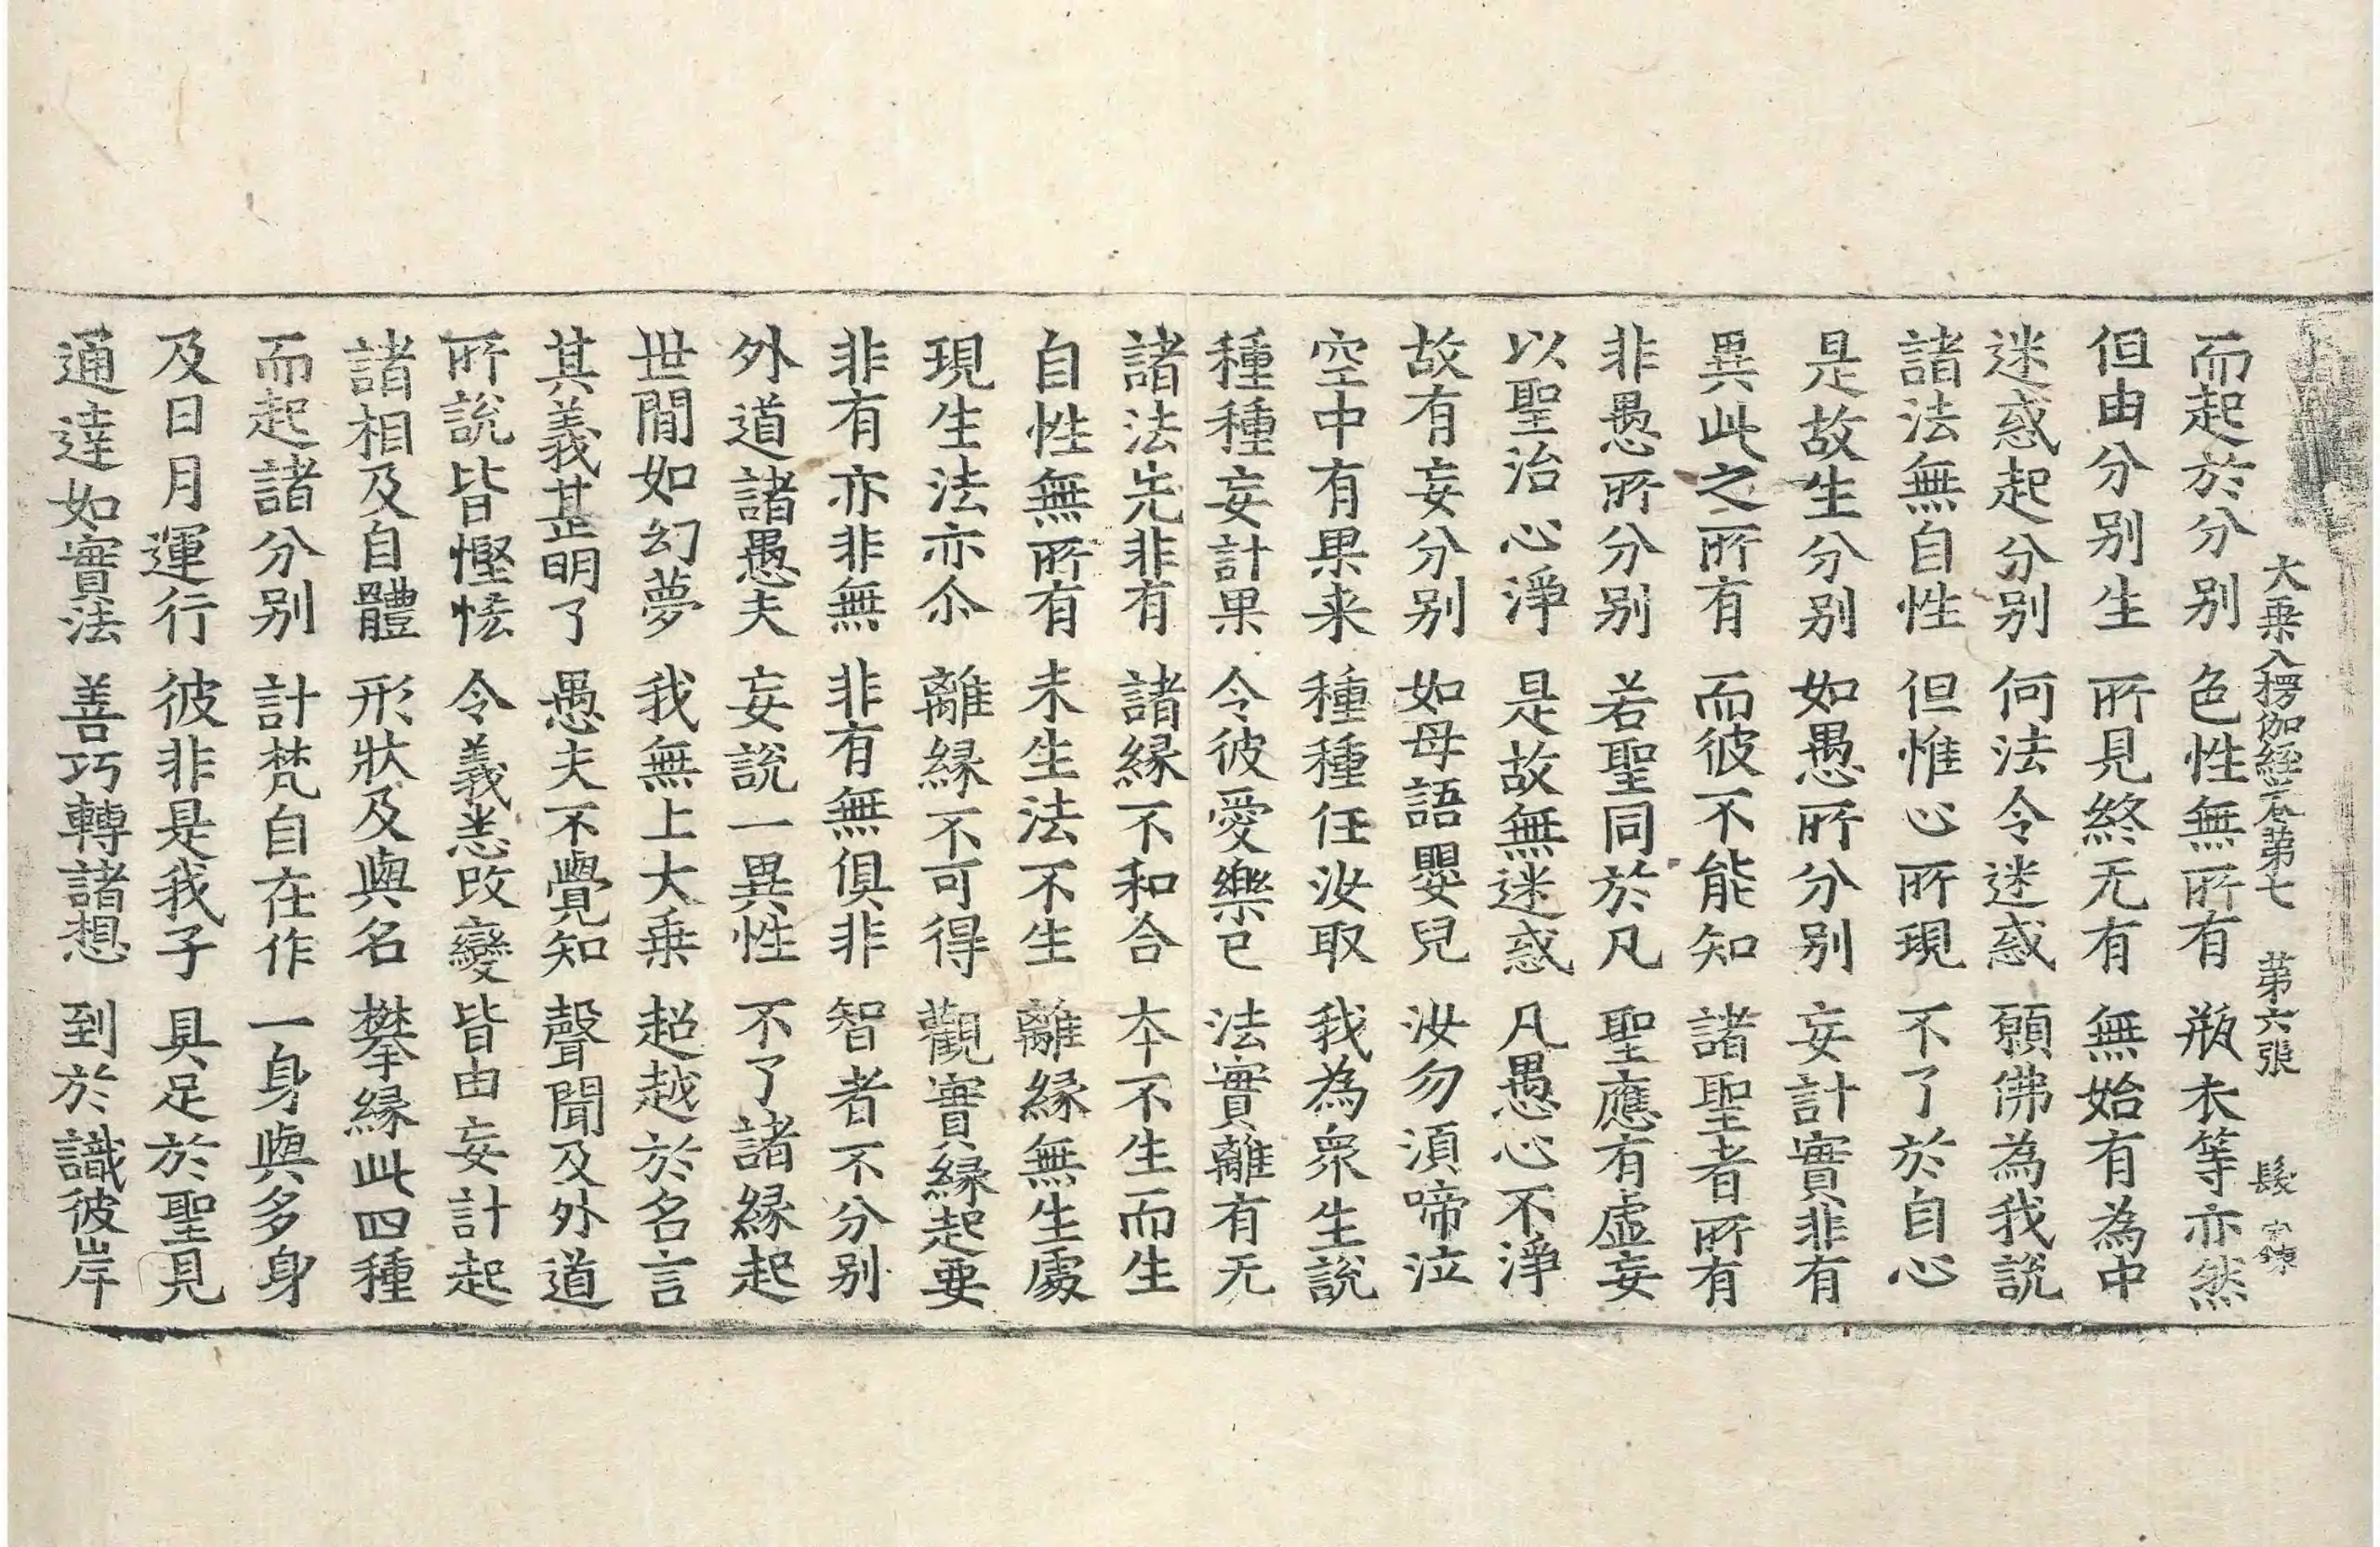 大乗入楞伽経卷第七　第六張　髮
而起於分別　色性無所有　瓶衣等亦然
但由分別生　所見終无有　無始有為中
迷惑起分別　何法令迷惑　願佛為我説
諸法無自性　但惟心所現　不了於自心
是故生分別　如愚所分別　妄計實非有
異此之所有　而彼不能知　諸聖者所有
非愚所分別　若聖同於凡　聖應有虛妄
以聖治心淨　是故無迷惑　凡愚心不淨
故有妄分別　如母語嬰兒　汝勿湏啼泣
空中有果来　種種任汝取　我為衆生說
種種妄計果　令彼愛樂已　法實離有无
諸法先非有　諸縁不和合　本不生而生
自性無所有　未生法不生　離縁無生處
現生法亦尒　離縁不可得　觀實縁起要
非有亦非無　非有無俱非　智者不分別
外道諸愚夫　妄說一異性　不了諸縁起
世間如幻夢　我無上大乗　超越於名言
其義甚明了　愚夫不覺知　聲聞及外道
所說皆慳悋　令義悉改變　皆由妄計起
諸相及自體　形狀及與名　攀縁此四種
而起諸分別　計梵自在作　一身與多身
及日月運行　彼非是我子　具足於聖見
通達如實法　善巧轉諸想　到於識彼岸